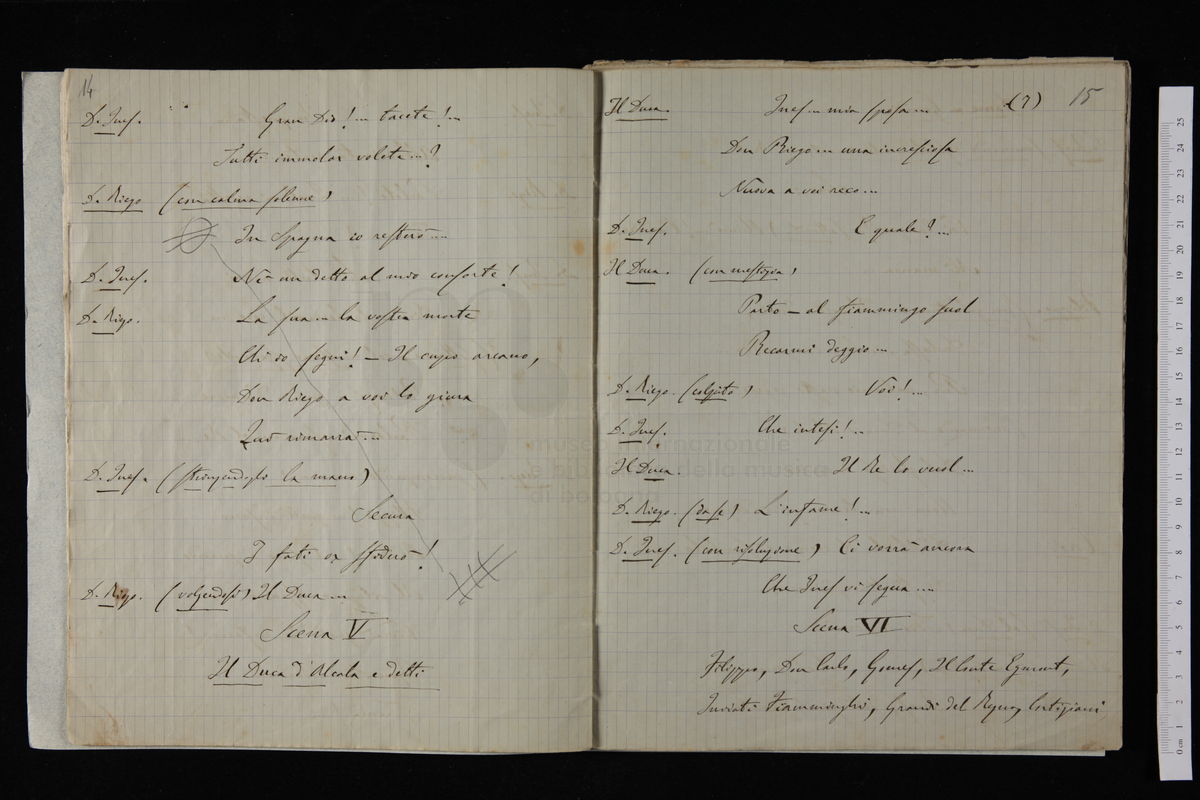 14
D. Ines. Gran Dio!... tacete!...
Tutti immolar volete...?
D. Riego (con calma solenne)
In Spagna io resterò....
D. Ines. Nè un detto al mio consorte!
D. Riego. La sua... la vostra morte
Chi io segni! — Il cupo arcano,
Don Riego a voi lo giura
Qui rimarrà...
D. Ines. (stringendogli la mano)
Secura
I fati or sfiderò!
D. Riego. (volgendosi) Il Duca...
Scena V
Il Duca d'Alcala e detti
(7) 15
Il Duca. Ines... mia sposa...
Don Riego... una incresciosa
Nuova a voi reco...
D. Ines. E quale?...
Il Duca. (con mestizia)
Parto — al fiammingo suol
Recarmi deggio...
D. Riego. (colpito) Voi!...
D. Ines. Che intesi!...
Il Duca. Il Re lo vuol...
D. Riego. (da se) L'infame!...
D. Ines. (con risoluzione) Ei vorrà ancora
Che Ines vi segua....
Scena VI
Filippo, Don Carlo, Gomes, Il Conte Egmont,
Inviati Fiamminghi, Grandi del Regno, Cortigiani
museo internazionale
e biblioteca della musica
di bologna
0 cm 1 2 3 4 5 6 7 8 9 10 11 12 13 14 15 16 17 18 19 20 21 22 23 24 25